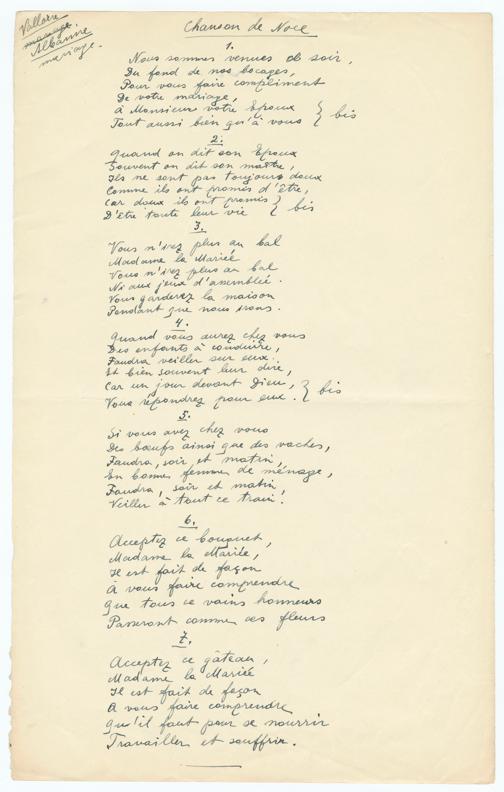 Valloire
mariage.
Albanne
mariage.
Chanson de Noce
1.
Nous sommes venues ce soir,
Du fond de nos bocages,
Pour vous faire compliment
De votre mariage,
à Monsieur votre Epoux } bis
Tout aussi bien qu'à vous
2.
Quand on dit son Epoux
Souvent on dit son maître,
Ils ne sont pas toujours doux
Comme ils ont promis d'être,
Car doux ils ont promis } bis
D'être toute leur vie
3.
Vous n'irez plus au bal
Madame la Mariée
Vous n'irez plus au bal
Ni aux jeux d'assemblée.
Vous garderez la maison
Pendant que nous irons.
4.
Quand vous aurez chez vous
Des enfants à conduire,
Faudra veiller sur eux.
Et bien souvent leur dire,
Car un jour devant Dieu, } bis
Vous répondrez pour eux.
5.
Si vous avez chez vous
Des bœufs ainsi que des vaches,
Faudra, soir et matin,
En bonnes femme de ménage,
Faudra, soir et matin,
Veiller à tout ce train.
6.
Acceptez ce bouquet,
Madame la Mariée,
Il est fait de façon
À vous faire comprendre
Que tous ce vains honneurs
Passeront comme ces fleurs
7.
Acceptez ce gâteau,
Madame la Mariée
Il est fait de façon
A vous faire comprendre
Qu'il faut pour se nourrir
Travailler et souffrir.